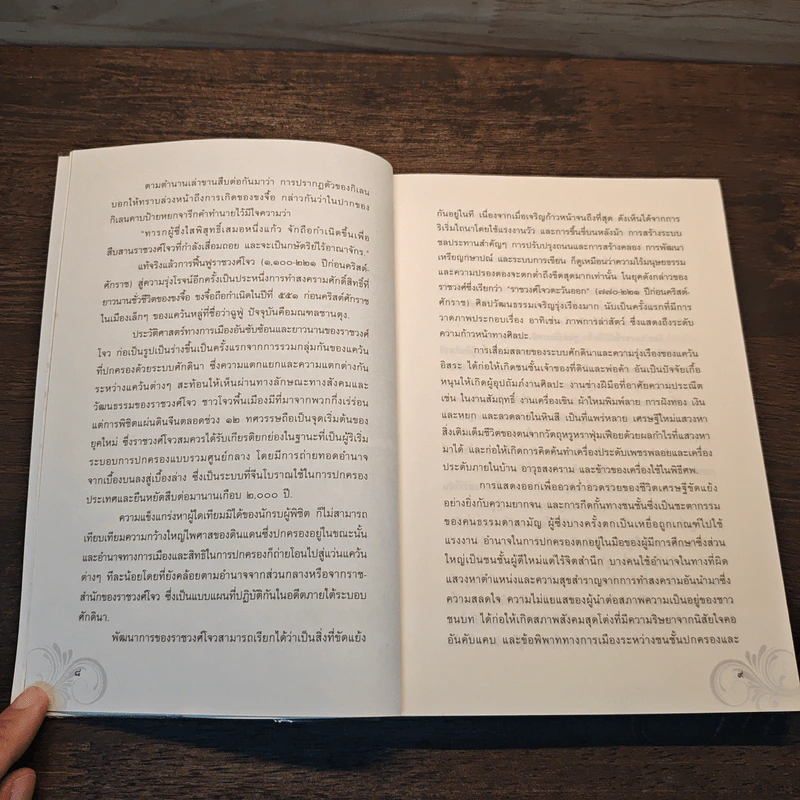 ตามตำนานเล่าขานสืบต่อกันมาว่า การปรากฏตัวของกิเลน
บอกให้ทราบล่วงหน้าถึงการเกิดของขงจื้อ กล่าวกันว่าในปากของ
กิเลนคาบป้ายหยกจารึกคำทำนายไว้มีใจความว่า
"ทารกผู้ซึ่งใสพิสุทธิ์เสมอหนึ่งแก้ว จักถือกำเนิดขึ้นเพื่อ
สืบสานราชวงศ์โจวที่กำลังเสื่อมถอย และจะเป็นกษัตริย์ไร้อาณาจักร."
แท้จริงแล้วการฟื้นฟูราชวงศ์โจว (๑,๑๐๐-๒๒๑ ปีก่อนคริสต์-
ศักราช) สู่ความรุ่งโรจน์อีกครั้งเป็นประหนึ่งการทำสงครามศักดิ์สิทธิ์ที่
ยาวนานชั่วชีวิตของขงจื้อ ขงจื้อถือกำเนิดในปีที่ ๕๕๑ ก่อนคริสต์ศักราช
ในเมืองเล็กๆ ของแคว้นหลู่ที่ชื่อว่าฉูฟู่ ปัจจุบันคือมณฑลซานตุง.
ประวัติศาสตร์ทางการเมืองอันซับซ้อนและยาวนานของราชวงศ์
โจว ก่อเป็นรูปเป็นร่างขึ้นเป็นครั้งแรกจากการรวมกลุ่มกันของแคว้น
ที่ปกครองด้วยระบบศักดินา ซึ่งความแตกแยกและความแตกต่างกัน
ระหว่างแคว้นต่างๆ สะท้อนให้เห็นผ่านทางลักษณะทางสังคมและ
วัฒนธรรมของราชวงศ์โจว ชาวโจวพื้นเมืองมีที่มาจากพวกกึ่งเร่ร่อน
แต่การพิชิตแผ่นดินจีนตลอดช่วง ๑๒ ทศวรรษถือเป็นจุดเริ่มต้นของ
ยุคใหม่ ซึ่งราชวงศ์โจวสมควรได้รับเกียรติยกย่องในฐานะที่เป็นผู้ริเริ่ม
ระบอบการปกครองแบบรวมศูนย์กลาง โดยมีการถ่ายทอดอำนาจ
จากเบื้องบนลงสู่เบื้องล่าง ซึ่งเป็นระบบที่จีนโบราณใช้ในการปกครอง
ประเทศและยืนหยัดสืบต่อมานานเกือบ ๒,๐๐๐ ปี.
ความแข็งแกร่งหาผู้ใดเทียมมิได้ของนักรบผู้พิชิต ก็ไม่สามารถ
เทียบเทียมความกว้างใหญ่ไพศาลของดินแดนซึ่งปกครองอยู่ในขณะนั้น
และอำนาจทางการเมืองและสิทธิในการปกครองก็ถ่ายโอนไปสู่แว่นแคว้น
ต่างๆ ทีละน้อยโดยที่ยังคล้อยตามอำนาจจากส่วนกลางหรือจากราช-
สำนักของราชวงศ์โจว ซึ่งเป็นแบบแผนที่ปฏิบัติกันในอดีตภายใต้ระบอบ
ศักดินา.
พัฒนาการของราชวงศ์โจวสามารถเรียกได้ว่าเป็นสิ่งที่ขัดแย้ง
๘
กันอยู่ในที เนื่องจากเมื่อเจริญก้าวหน้าจนถึงที่สุด ดังเห็นได้จากการ
ริเริ่มไถนาโดยใช้แรงงานวัว และการขึ้นขี่บนหลังม้า การสร้างระบบ
ชลประทานสำคัญๆ การปรับปรุงถนนและการสร้างคลอง การพัฒนา
เหรียญกษาปณ์ และระบบการเขียน ก็ดูเหมือนว่าความไร้มนุษยธรรม
และความปรองดองจะตกต่ำถึงขีดสุดมากเท่านั้น ในยุคดังกล่าวของ
ราชวงศ์ซึ่งเรียกว่า "ราชวงศ์โจวตะวันออก" (๗๗๐-๒๒๑ ปีก่อนคริสต์-
ศักราช) ศิลปวัฒนธรรมเจริญรุ่งเรืองมาก นับเป็นครั้งแรกที่มีการ
วาดภาพประกอบเรื่อง อาทิเช่น ภาพการล่าสัตว์ ซึ่งแสดงถึงระดับ
ความก้าวหน้าทางศิลปะ.
การเสื่อมสลายของระบบศักดินาและความรุ่งเรืองของแคว้น
อิสระ ได้ก่อให้เกิดชนชั้นเจ้าของที่ดินและพ่อค้า อันเป็นปัจจัยเกื้อ
หนุนให้เกิดผู้อุปถัมภ์งานศิลปะ งานช่างฝีมือที่อาศัยความประณีต
เช่น ในงานสัมฤทธิ์ งานเครื่องเขิน ผ้าไหมพิมพ์ลาย การฝังทอง เงิน
และหยก และลวดลายในหินสี เป็นที่แพร่หลาย เศรษฐีใหม่แสวงหา
สิ่งเติมเต็มชีวิตของตนจากวัตถุหรูหราฟุ่มเฟือยด้วยผลกำไรที่แสวงหา
มาได้ และก่อให้เกิดการคิดค้นทำเครื่องประดับเพชรพลอยและเครื่อง
ประดับภายในบ้าน อาวุธสงคราม และข้าวของเครื่องใช้ในพิธีศพ.
การแสดงออกเพื่ออวดร่ำอวดรวยของชีวิตเศรษฐีขัดแย้ง
อย่างยิ่งกับความยากจน และการกีดกันทางชนชั้นซึ่งเป็นชะตากรรม
ของคนธรรมดาสามัญ ผู้ซึ่งบางครั้งตกเป็นเหยื่อถูกเกณฑ์ไปใช้
แรงงาน อำนาจในการปกครองตกอยู่ในมือของผู้มีการศึกษาซึ่งส่วน
ใหญ่เป็นชนชั้นผู้ดีใหม่แต่ไร้จิตสำนึก บางคนใช้อำนาจในทางที่ผิด
แสวงหาตำแหน่งและความสุขสำราญจากการทำสงครามอันนำมาซึ่ง
ความสลดใจ ความไม่แยแสของผู้นำต่อสภาพความเป็นอยู่ของชาว
ชนบท ได้ก่อให้เกิดสภาพสังคมสุดโต่งที่มีความริษยาจากนิสัยใจคอ
อันคับแคบ และข้อพิพาททางการเมืองระหว่างชนชั้นปกครองและ
๙